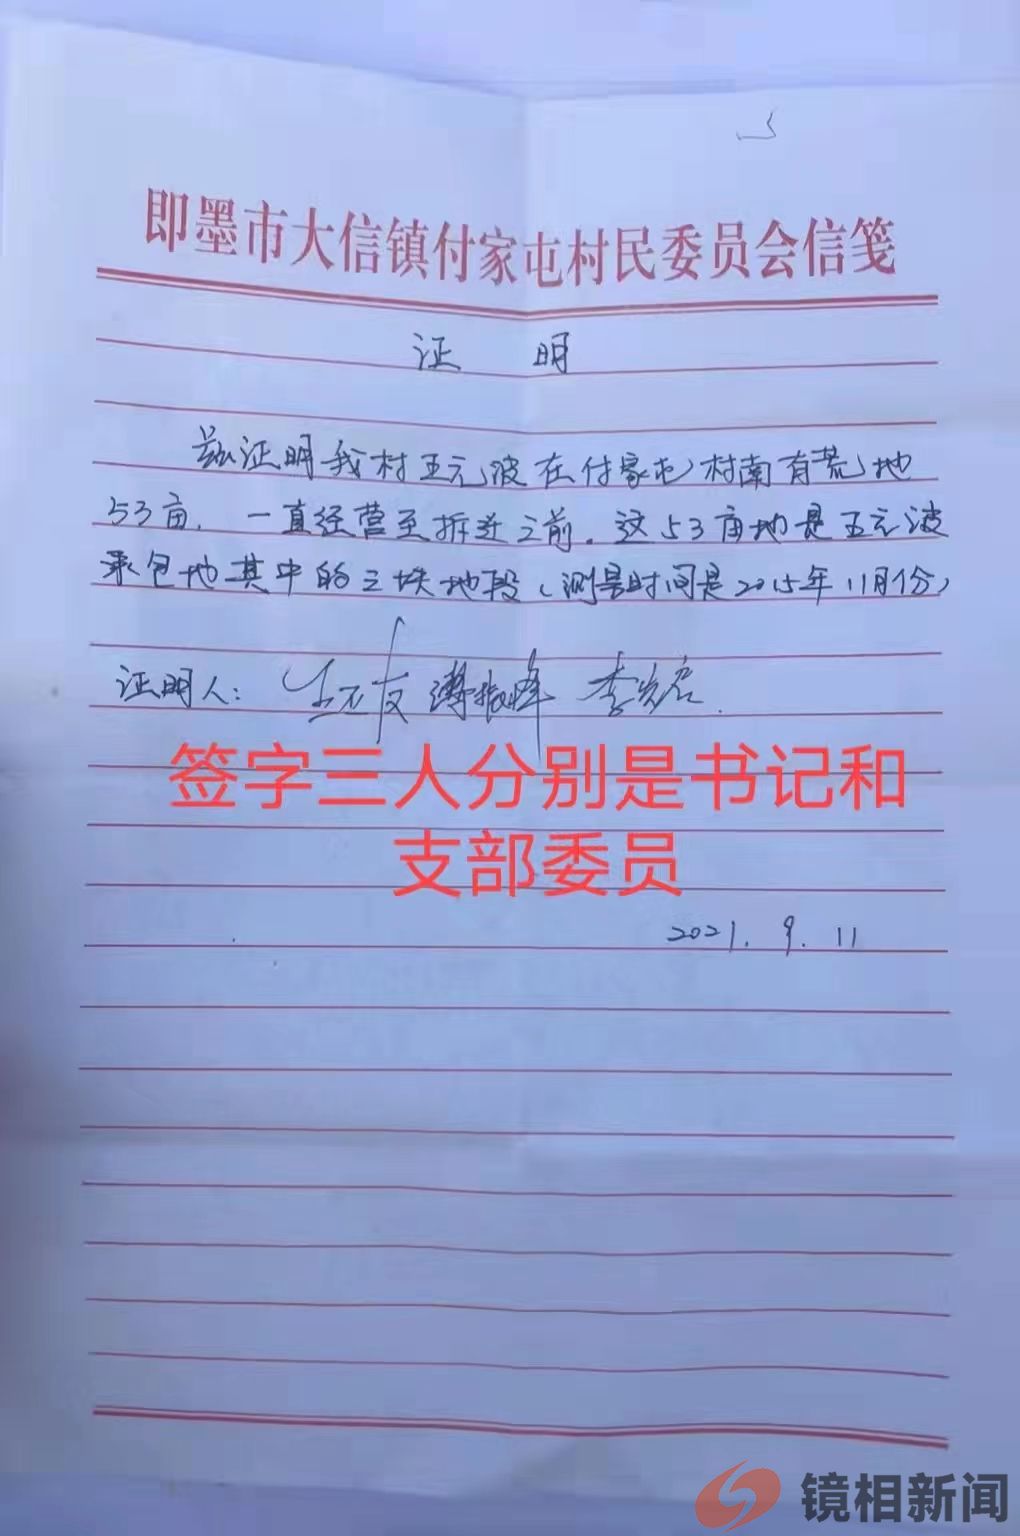 即墨市大信镇付家屯村民委员会信笺
证 明
兹证明我村王元波在付家屯村南有荒地
53亩，一直经营至拆迁之前。这53亩地是王元波
承包地其中的三块地段（测量时间是2015年11月份）
证明人：
签字三人分别是书记和
支部委员
2021.9.11
镜相新闻